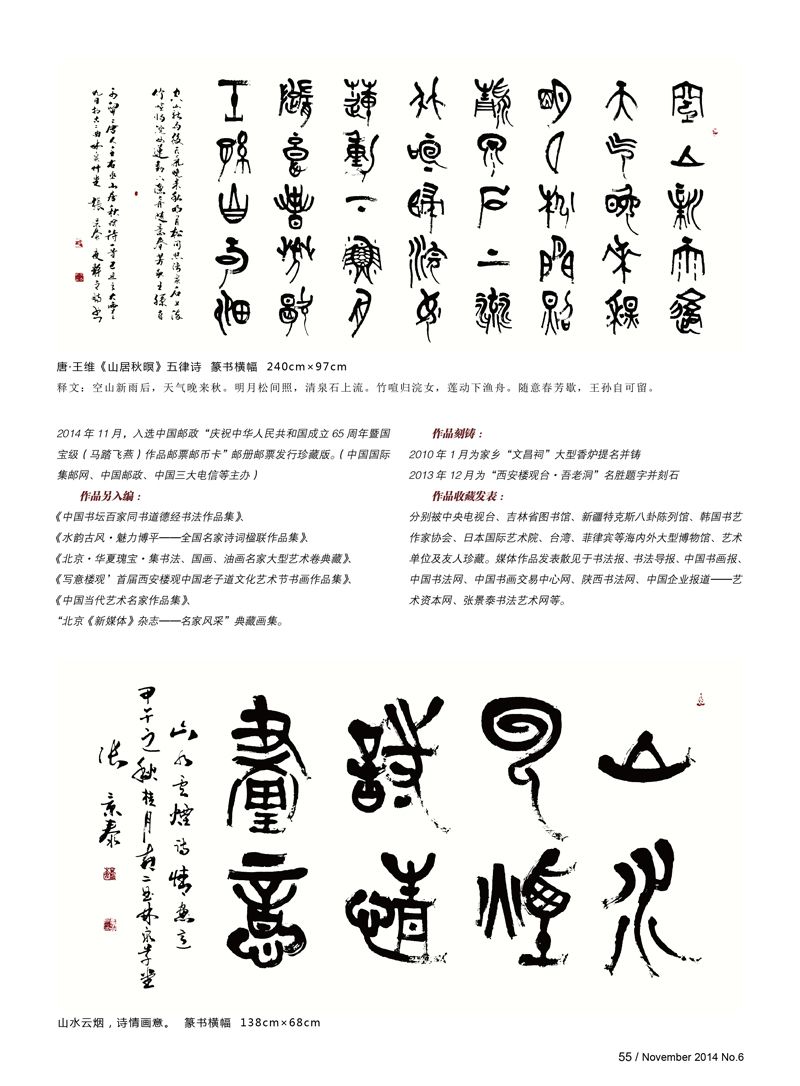 空山新雨後
天气晚來秋
明月松間照
清泉石上流
竹喧歸浣女
蓮動下漁舟
隨意春芳歇
王孫自可留
唐·王维《山居秋暝》五律诗 篆书横幅 240cm×97cm
释文：空山新雨后，天气晚来秋。明月松间照，清泉石上流。竹喧归浣女，莲动下渔舟。随意春芳歇，王孙自可留。
2014 年 11 月，入选中国邮政“庆祝中华人民共和国成立 65 周年暨国
宝级（马踏飞燕）作品邮票邮币卡”邮册邮票发行珍藏版。（中国国际
集邮网、中国邮政、中国三大电信等主办）
作品另入编：
《中国书坛百家同书道德经书法作品集》、
《水韵古风·魅力博平——全国名家诗词楹联作品集》、
《北京·华夏瑰宝·集书法、国画、油画名家大型艺术卷典藏》、
《写意楼观’首届西安楼观中国老子道文化艺术节书画作品集》、
《中国当代艺术名家作品集》、
“北京《新媒体》杂志——名家风采”典藏画集。
作品刻铸：
2010 年 1 月为家乡“文昌祠”大型香炉提名并铸
2013 年 12 月为“西安楼观台·吾老洞”名胜题字并刻石
作品收藏发表：
分别被中央电视台、吉林省图书馆、新疆特克斯八卦陈列馆、韩国书艺
作家协会、日本国际艺术院、台湾、菲律宾等海内外大型博物馆、艺术
单位及友人珍藏。媒体作品发表散见于书法报、书法导报、中国书画报、
中国书法网、中国书画交易中心网、陕西书法网、中国企业报道——艺
术资本网、张景泰书法艺术网等。
山水
云煙
詩情
畫意
山水云煙诗情画意
甲午之秋桂月
张景泰
山水云烟，诗情画意。 篆书横幅 138cm×68cm
55 / November 2014 No.6